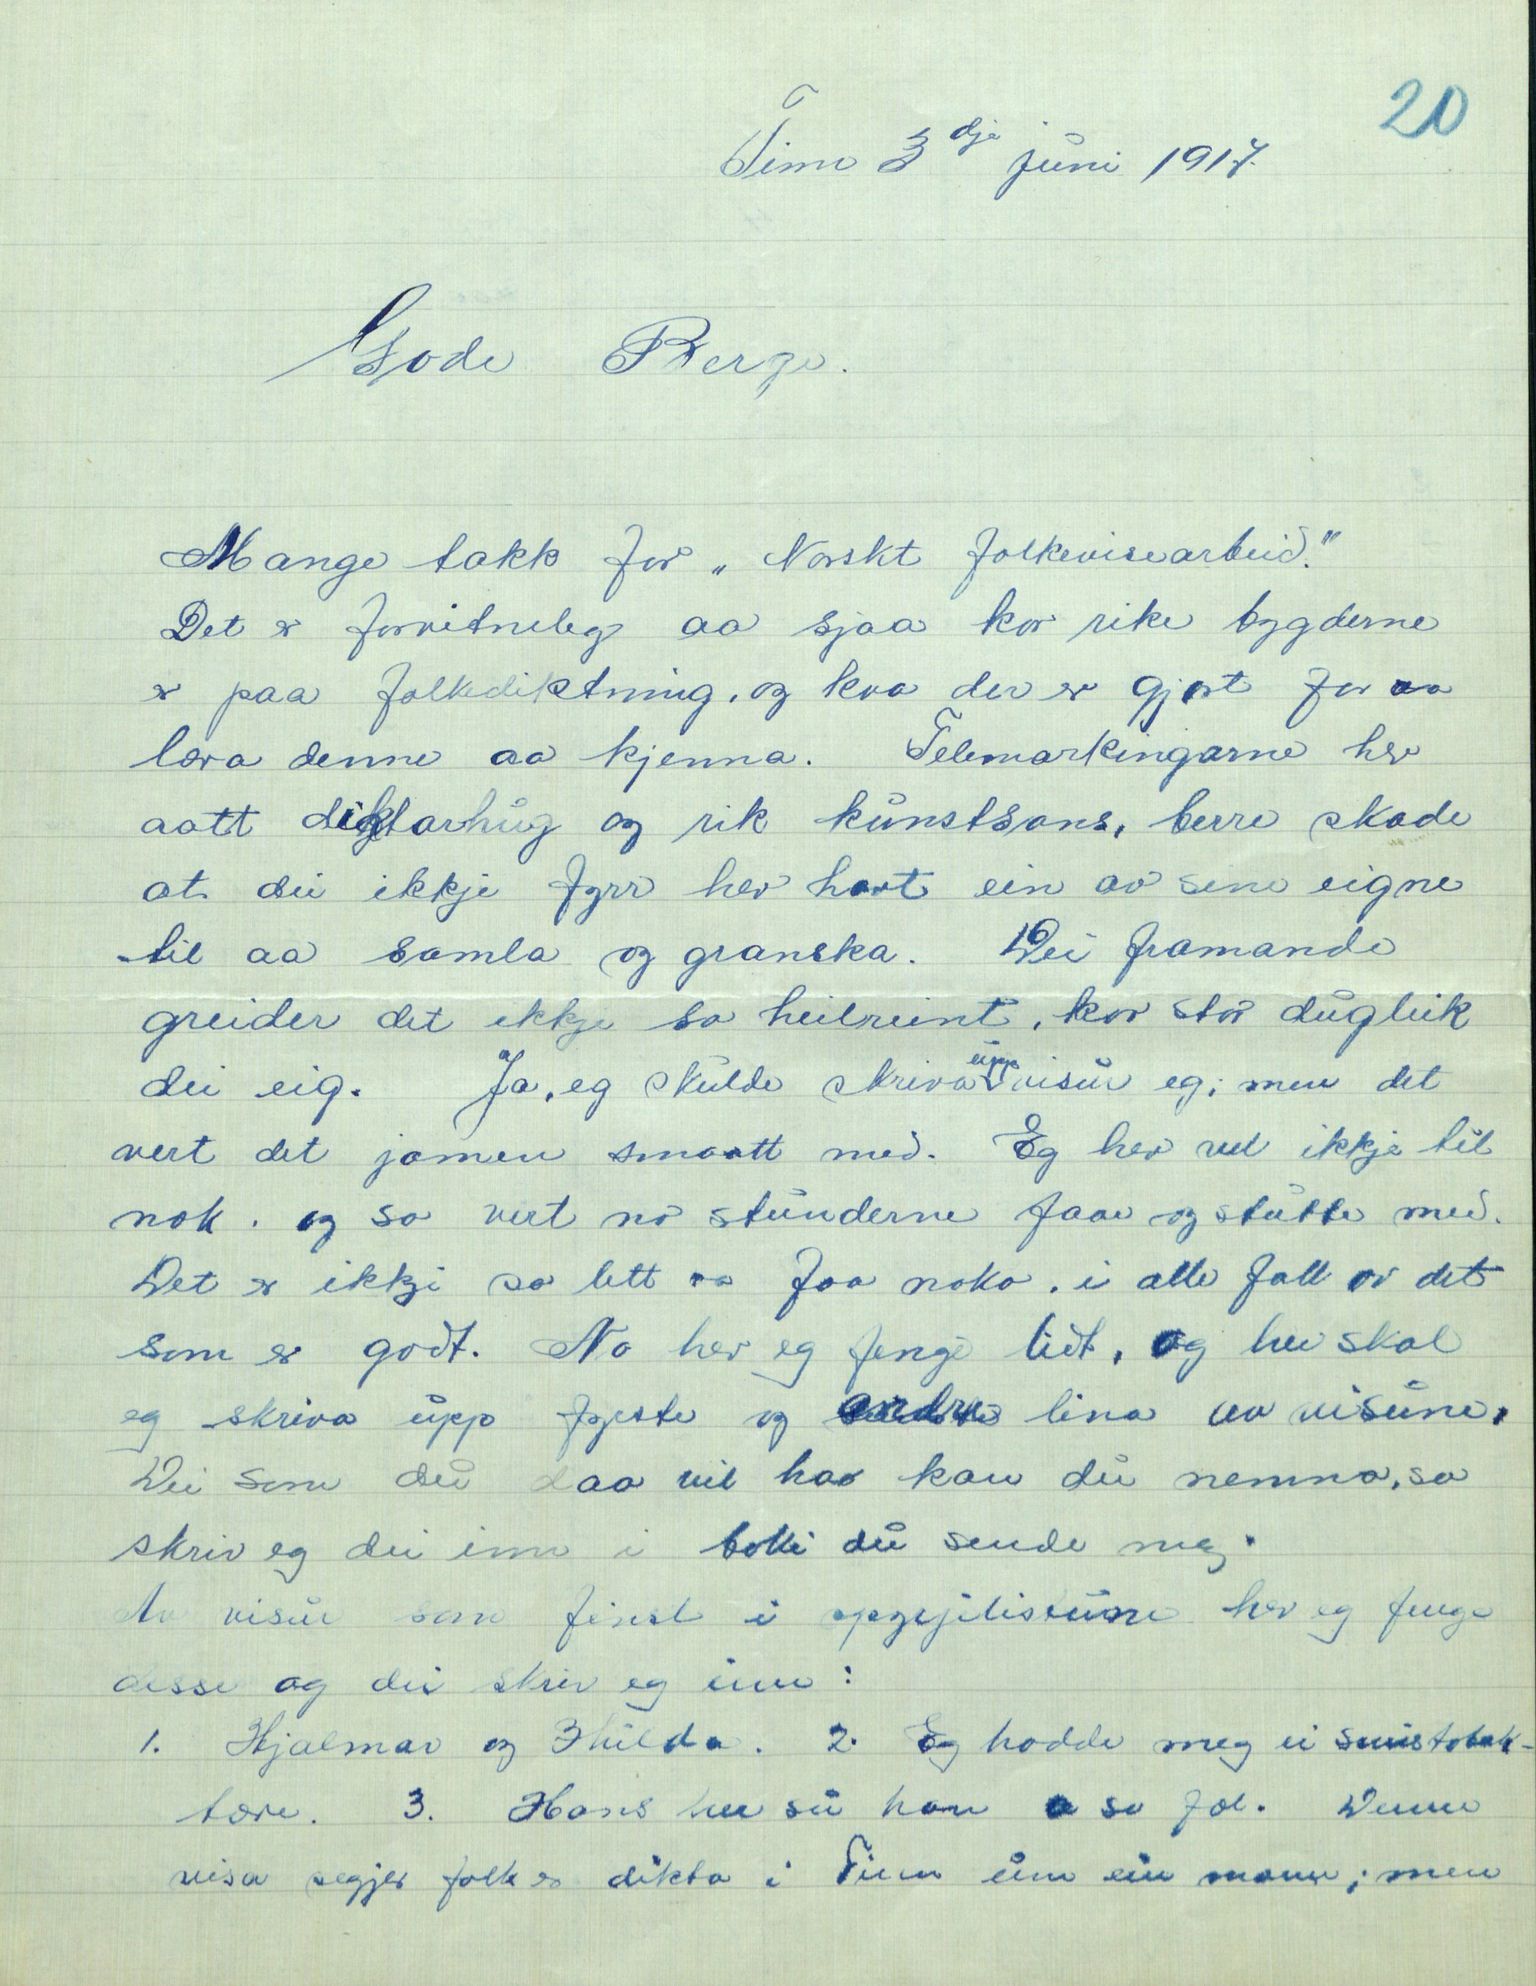 20
Tinn 3dje juni 1917.
Gode Berge.
Mange takk for „Norskt folkevisearbeid."
Det er forvitneleg aa sjaa kor rike bygderne
er paa folkediktning, og kva der er gjort for aa
læra denne aa kjenna. Telemarkingarne hev
aatt diktarhug og rik kunstsans, berre skade
at dei ikkje fyrr hev havt ein av sine eigne
til aa samla og granska. Dei framande
greider det ikkje so heilreint, kor stor dugleik
dei eig. Ja, eg skulde skriva upp visur eg; men det
vert det jamen smaatt med. Eg hev vel ikkje tid
nok, og so vert no stunderne faae og stutte med.
Det er ikkje so lett aa faa noko, i alle fall av det
som er godt. No hev eg fenge lidt, og her skal
eg skriva upp fyrste og andre lina av visune.
Dei som du daa vil hava kan du nemna, so
skriv eg dei inn i boki du sende meg.
Av visur som finst i spyrjelistune hev eg fenge
desse og dei skriv eg inn:
1. Hjalmar og Hulda. 2. Eg hadde meg ei snustobak-
tære. 3. Hans her su han a so fæl. Denne
visa segjer folk er dikta i Tinn um ein mann; men